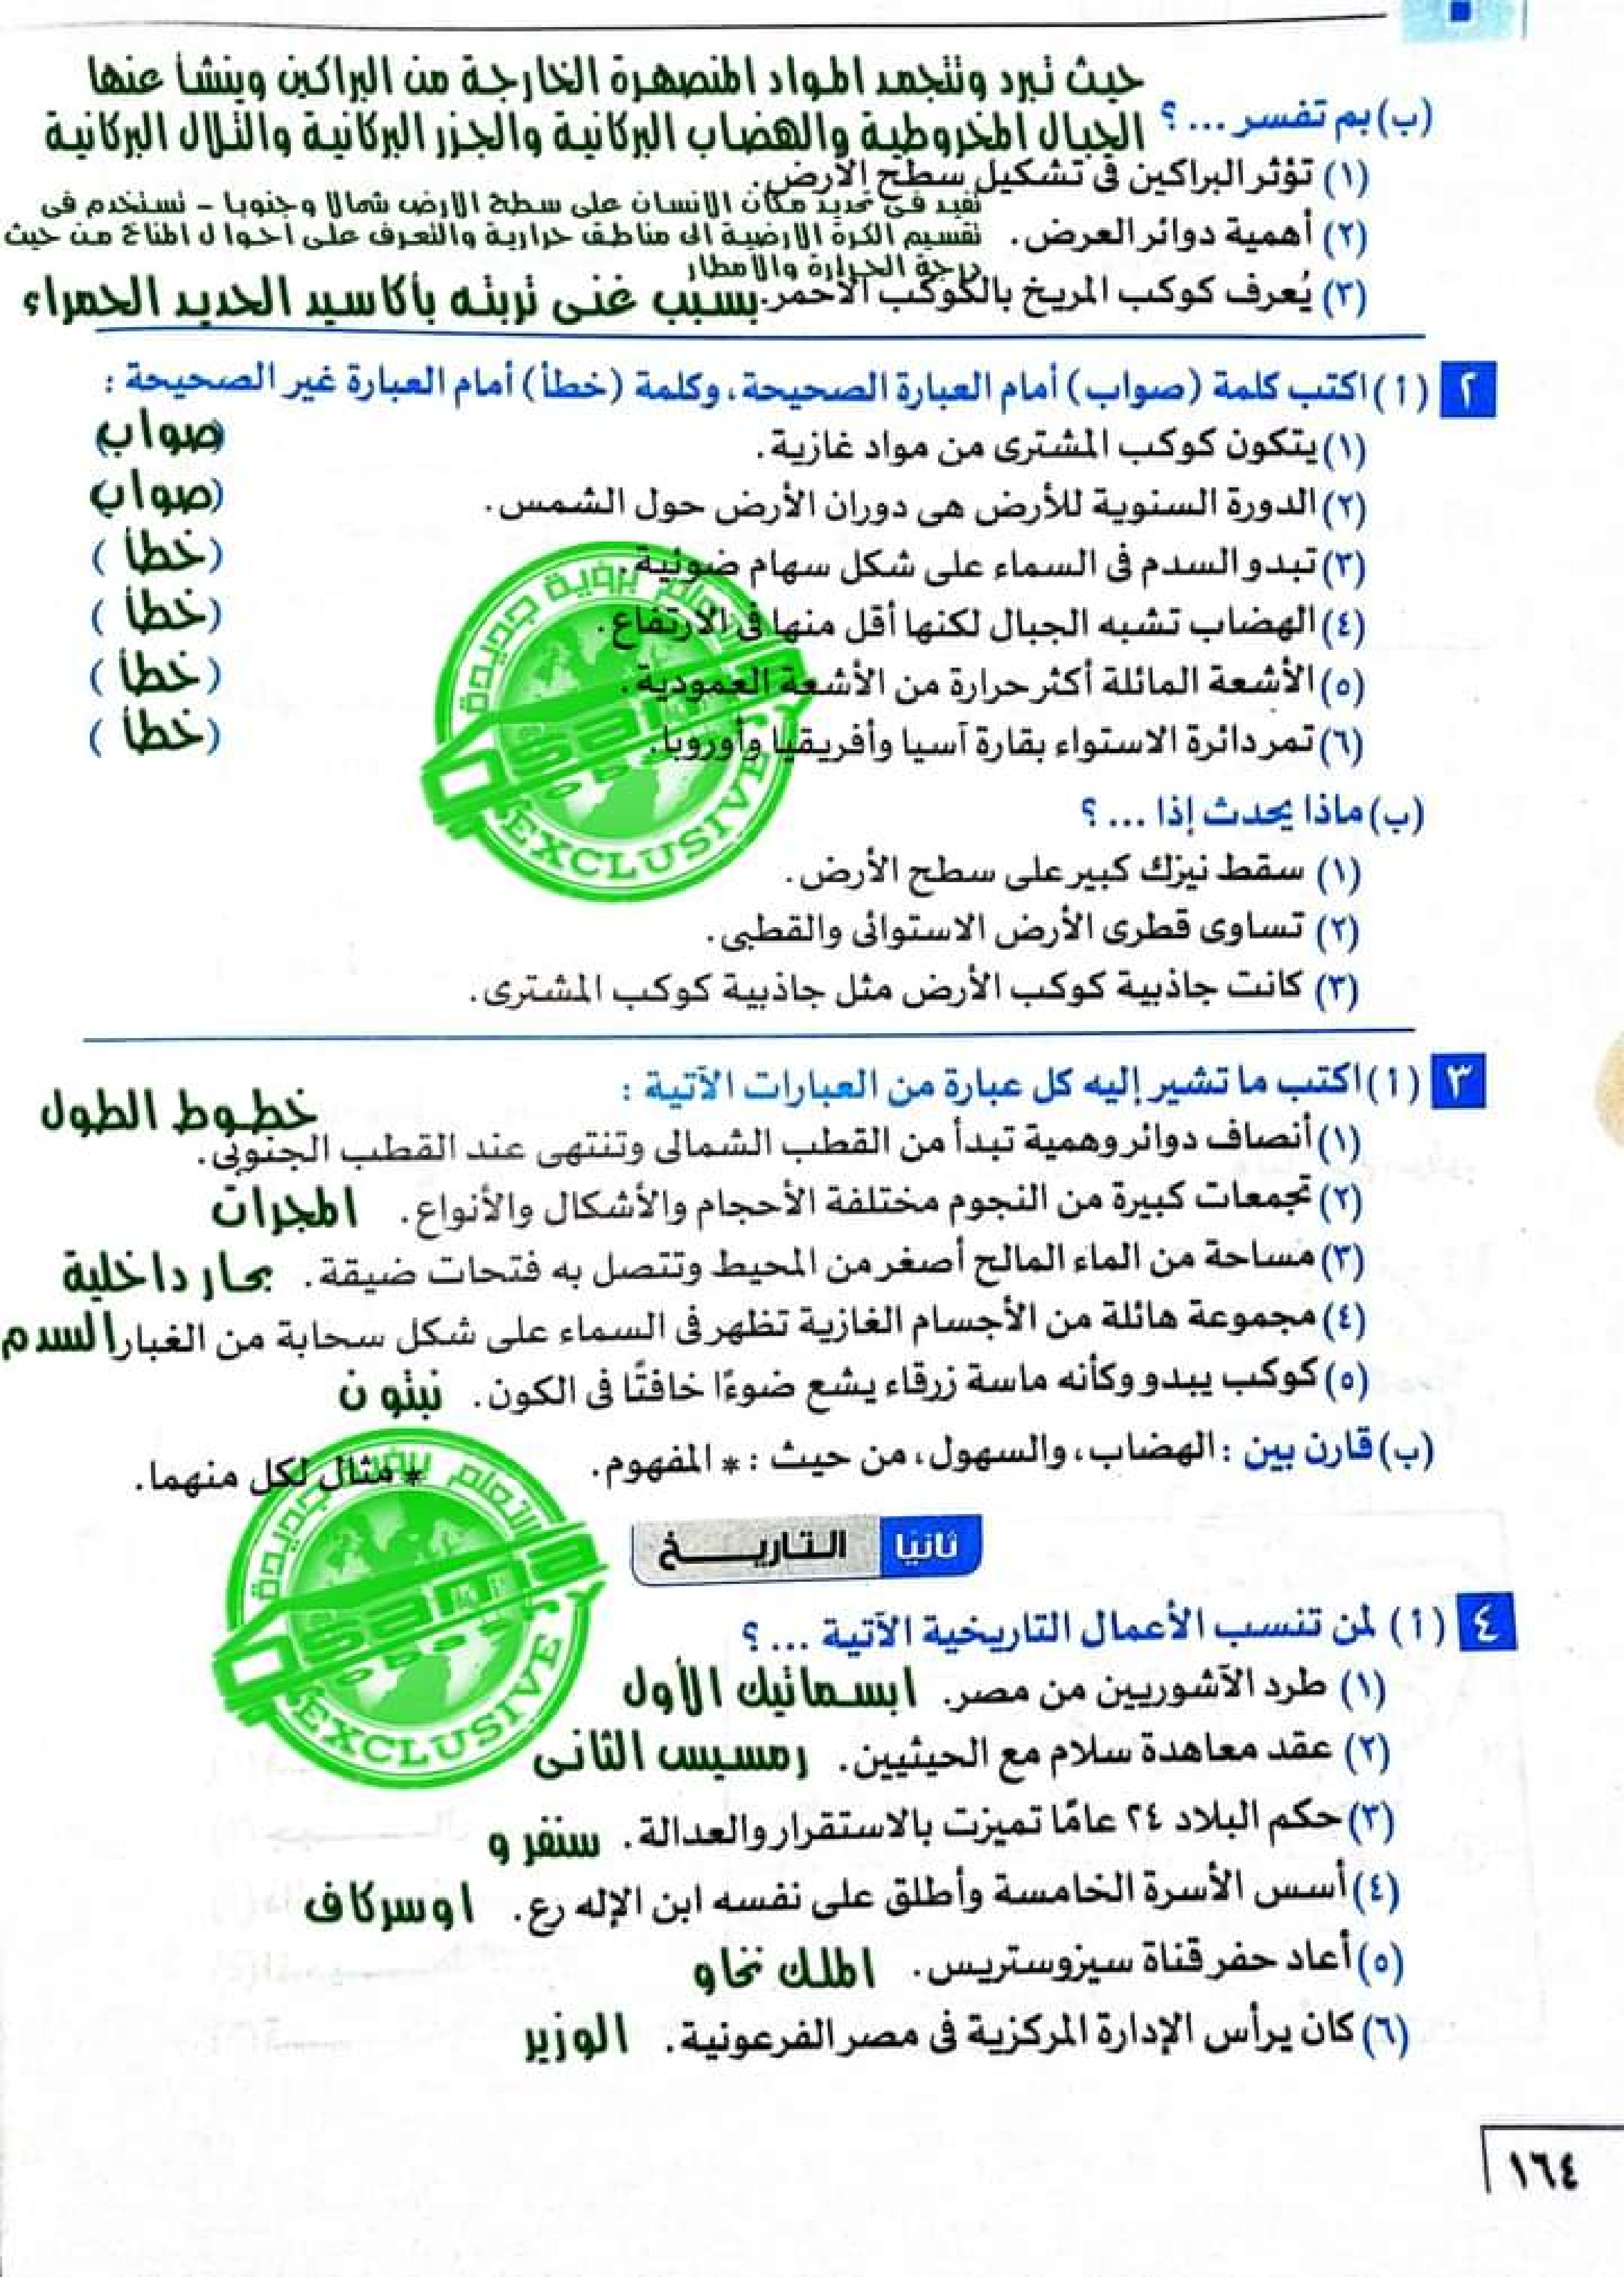 حيث تبرد وتتجمد المواد المنصهرة الخارجة من البراكين وينشأ عنها
(ب) بم تفسر ... ؟ الجبال المخروطية والهضاب البركانية والجزر البركانية والتلال البركانية
(١) تؤثر البراكين فى تشكيل سطح الأرض.
تفيد فى تحديد مكان الانسان على سطح الارض شمالا وجنوبا - تستخدم فى
(٢) أهمية دوائر العرض. تقسيم الكرة الارضية الى مناطق حرارية والتعرف على احوال المناخ من حيث
درجة الحرارة والامطار
(٣) يُعرف كوكب المريخ بالكوكب الأحمر. بسبب غنى تربته بأكاسيد الحديد الحمراء
٢ (أ) اكتب كلمة (صواب) أمام العبارة الصحيحة، وكلمة (خطأ) أمام العبارة غير الصحيحة :
(١) يتكون كوكب المشترى من مواد غازية. (صواب)
(٢) الدورة السنوية للأرض هى دوران الأرض حول الشمس. (صواب)
(٣) تبدو السدم فى السماء على شكل سهام ضوئية. (خطأ)
(٤) الهضاب تشبه الجبال لكنها أقل منها فى الارتفاع. (خطأ)
(٥) الأشعة المائلة أكثر حرارة من الأشعة العمودية. (خطأ)
(٦) تمر دائرة الاستواء بقارة آسيا وأفريقيا وأوروبا. (خطأ)
التعلم برؤية جديدة
EXCLUSIVE
(ب) ماذا يحدث إذا ... ؟
(١) سقط نيزك كبير على سطح الأرض.
(٢) تساوى قطرى الأرض الاستوائى والقطبى.
(٣) كانت جاذبية كوكب الأرض مثل جاذبية كوكب المشترى.
٣ (أ) اكتب ما تشير إليه كل عبارة من العبارات الآتية :
خطوط الطول
(١) أنصاف دوائر وهمية تبدأ من القطب الشمالى وتنتهى عند القطب الجنوبى.
(٢) تجمعات كبيرة من النجوم مختلفة الأحجام والأشكال والأنواع. المجرات
(٣) مساحة من الماء المالح أصغر من المحيط وتتصل به فتحات ضيقة. بحار داخلية
(٤) مجموعة هائلة من الأجسام الغازية تظهر فى السماء على شكل سحابة من الغبار السدم
(٥) كوكب يبدو وكأنه ماسة زرقاء يشع ضوءًا خافتًا فى الكون. نبتون
(ب) قارن بين : الهضاب، والسهول، من حيث : * المفهوم. * مثال لكل منهما.
التعلم برؤية جديدة
EXCLUSIVE
ثانيا التاريخ
٤ (أ) لمن تنسب الأعمال التاريخية الآتية ... ؟
(١) طرد الآشوريين من مصر. ابسماتيك الأول
(٢) عقد معاهدة سلام مع الحيثيين. رمسيس الثانى
(٣) حكم البلاد ٢٤ عامًا تميزت بالاستقرار والعدالة. سنفرو
(٤) أسس الأسرة الخامسة وأطلق على نفسه ابن الإله رع. اوسركاف
(٥) أعاد حفر قناة سيزوستريس. الملك نخاو
(٦) كان يرأس الإدارة المركزية فى مصر الفرعونية. الوزير
١٦٤